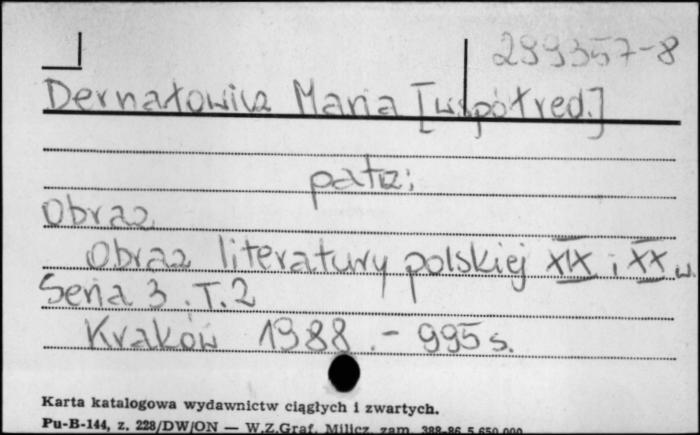 299357-8
Dernałowicz Maria [współred.]
patrz:
Obraz
Obraz literatury polskiej XIX i XX w.
Seria 3. T. 2
Kraków 1988. - 995 s.
Karta katalogowa wydawnictw ciągłych i zwartych.
Pu-B-144, z. 228/DW/ON — W.Z.Graf. Milicz, zam. 388-86 5.650.000